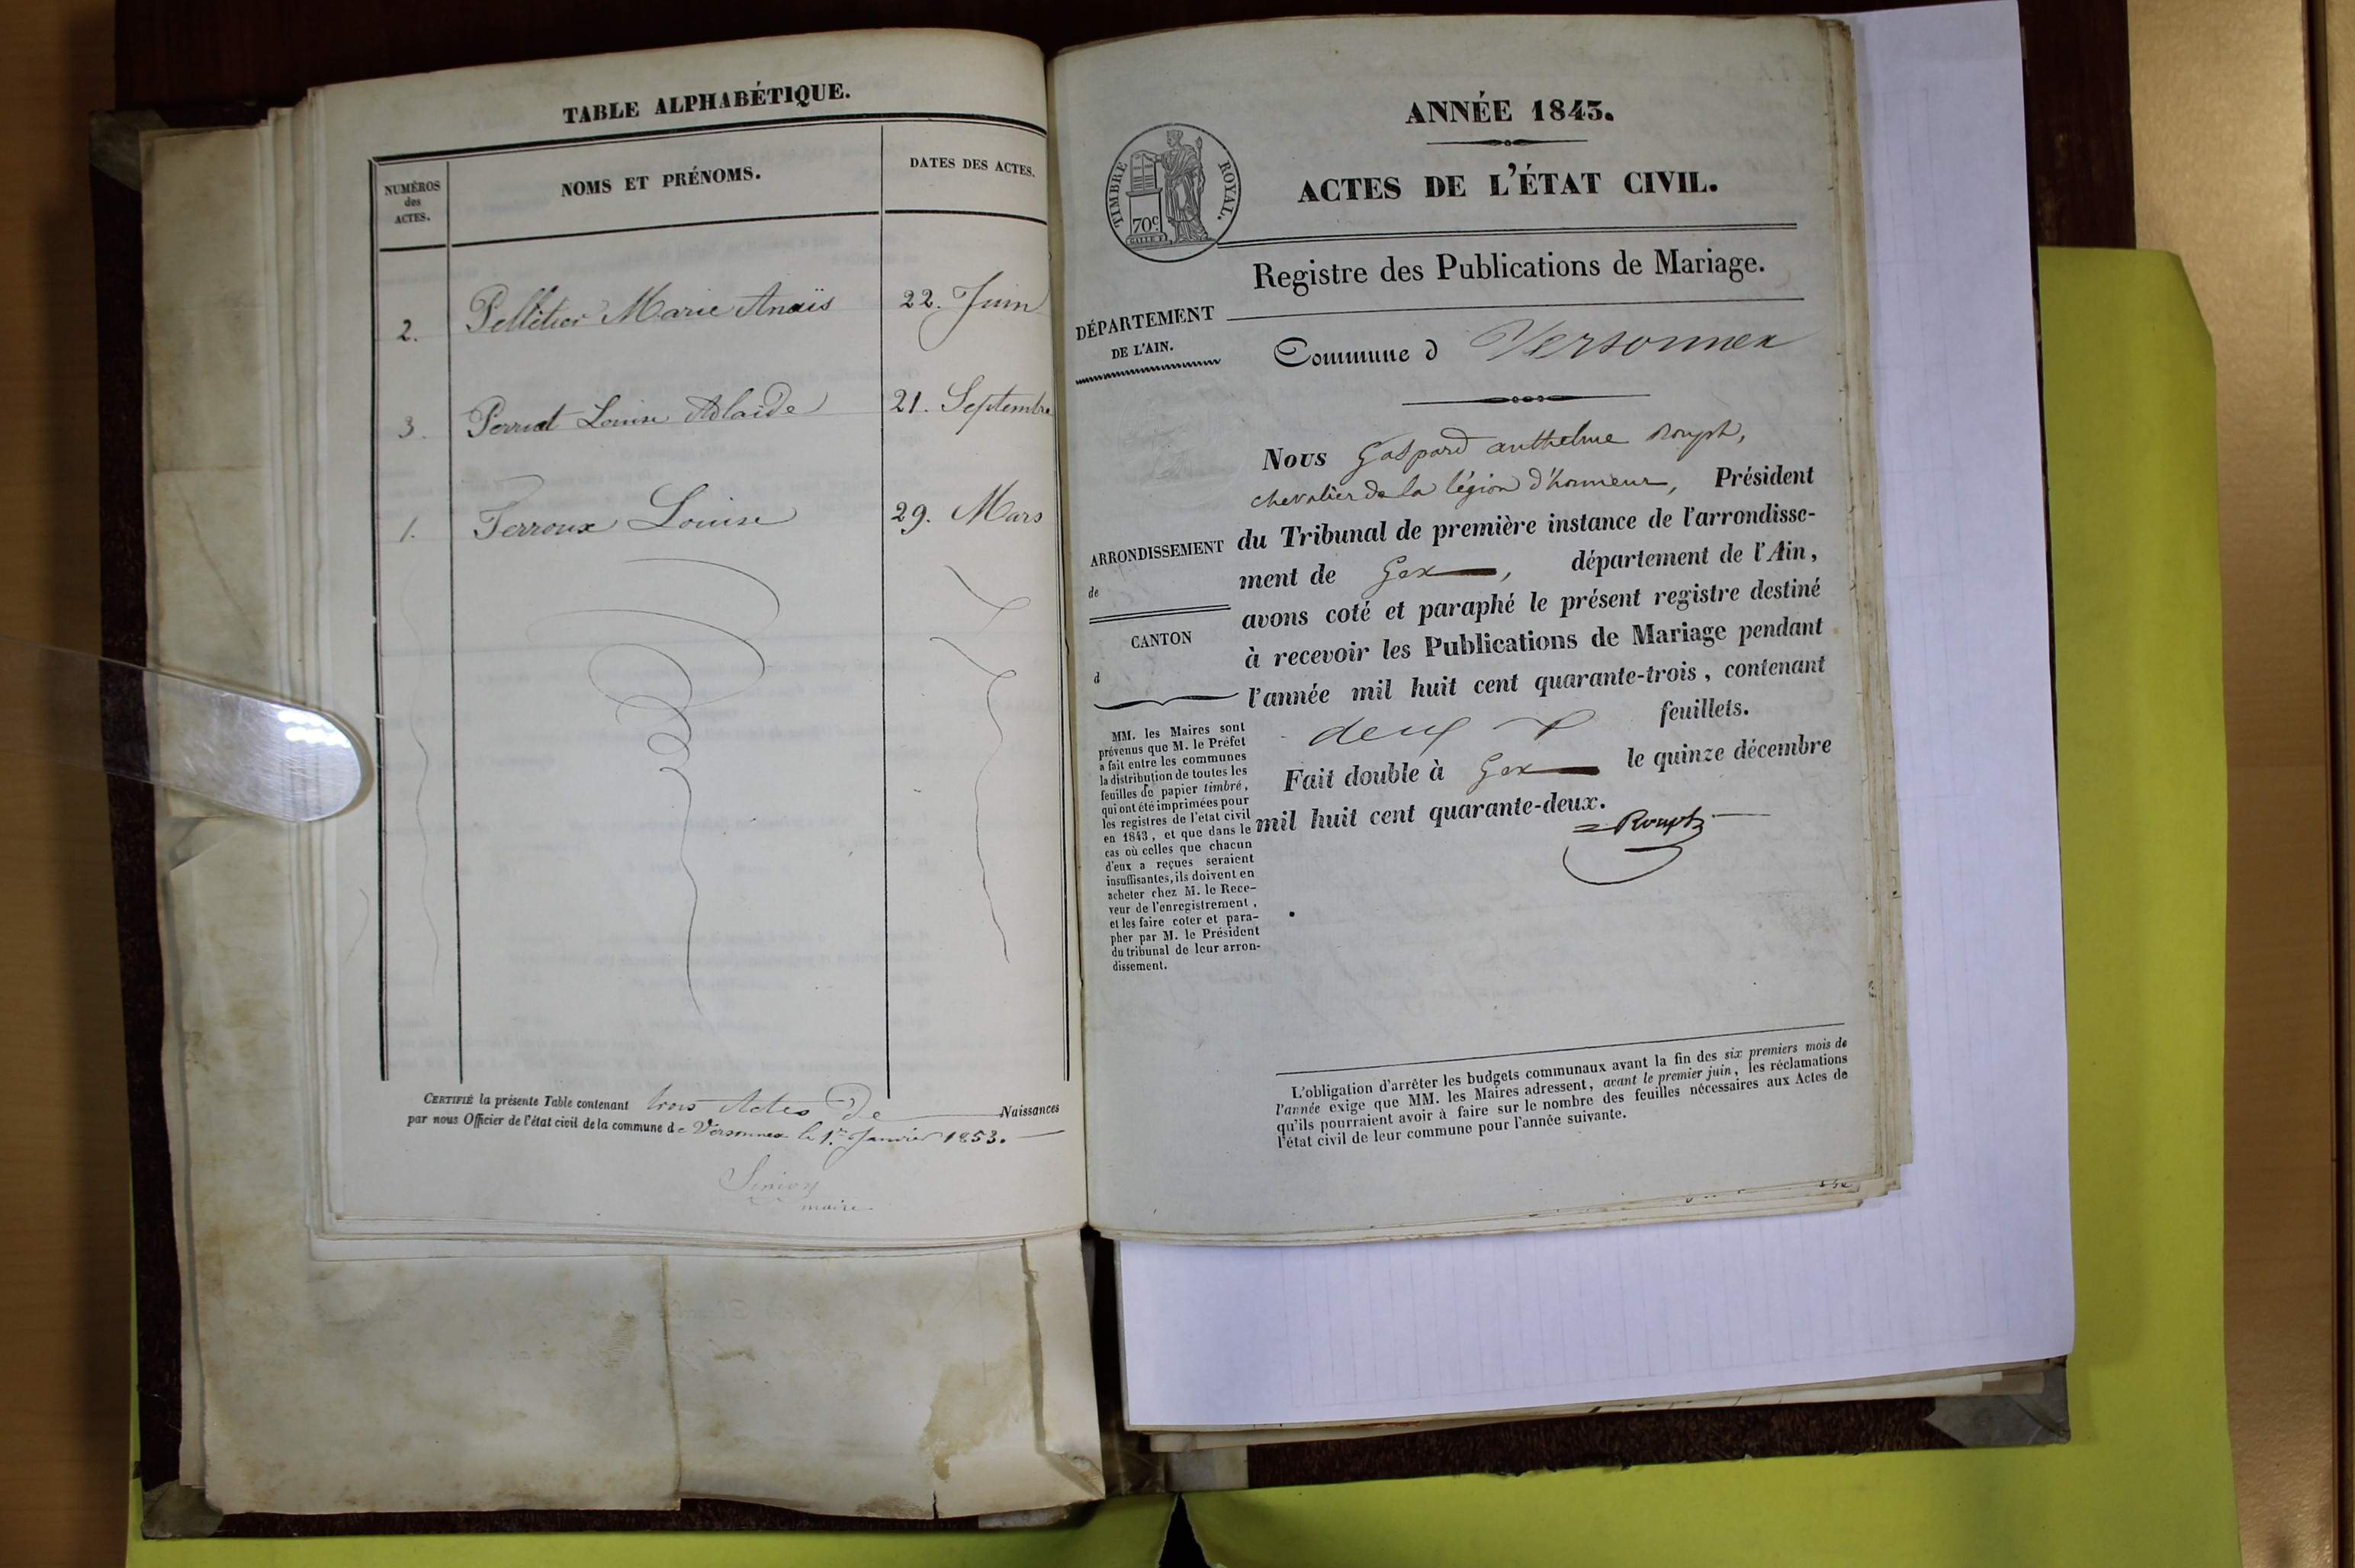 TABLE ALPHABÉTIQUE.
NUMÉROS
des
ACTES.
NOMS ET PRÉNOMS.
DATES DES ACTES.
2. Pelletier Marie Anaïs 22. Juin
3. Perrat Louise Adlaïde 21. Septembre
1. Terroux Louise 29. Mars
CERTIFIÉ la présente Table contenant trois Actes De Naissances
par nous Officier de l'état civil de la commune de Versonnex le 1er Janvier 1853.
maire
ANNÉE 1843.
TIMBRE ROYAL.
70c
ACTES DE L'ÉTAT CIVIL.
Registre des Publications de Mariage.
DÉPARTEMENT
DE L'AIN.
Commune d Versonnex
Nous Gaspard anthelme Rouph,
chevalier de la légion d'honneur, Président
du Tribunal de première instance de l'arrondisse-
ment de Gex, département de l'Ain,
avons coté et paraphé le présent registre destiné
à recevoir les Publications de Mariage pendant
l'année mil huit cent quarante-trois, contenant
deux feuillets.
Fait double à Gex le quinze décembre
mil huit cent quarante-deux.
Rouph
ARRONDISSEMENT
de
CANTON
d
MM. les Maires sont
prévenus que M. le Préfet
a fait entre les communes
la distribution de toutes les
feuilles de papier timbré,
qui ont été imprimées pour
les registres de l'état civil
en 1843, et que dans le
cas où celles que chacun
d'eux a reçues seraient
insuffisantes, ils doivent en
acheter chez M. le Rece-
veur de l'enregistrement,
et les faire coter et para-
pher par M. le Président
du tribunal de leur arron-
dissement.
L'obligation d'arrêter les budgets communaux avant la fin des six premiers mois de
l'année exige que MM. les Maires adressent, avant le premier juin, les réclamations
qu'ils pourraient avoir à faire sur le nombre des feuilles nécessaires aux Actes de
l'état civil de leur commune pour l'année suivante.